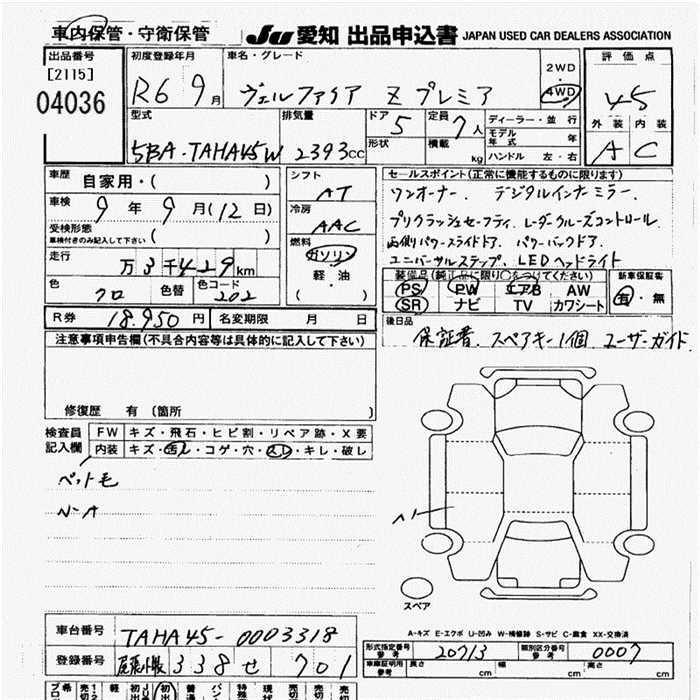 車内保管・守衛保管 JU 愛知 出品申込書 JAPAN USED CAR DEALERS ASSOCIATION
出品番号 初度登録年月 車名・グレード 2WD 評価点
[2115] R6 9月 ヴェルファイア Z プレミア ・ 4WD 45
04036
型式 排気量 ドア 5 定員 7人 ディーラー・並行 外装 内装
5BA-TAHA45W 2393cc 形状 積載 kg モデル年式 年 A C
ハンドル 左・右
車歴 自家用・( ) シフト AT セールスポイント(正常に機能するものに限ります)
車検 9年9月(12日) 冷房 AAC ワンオーナー. デジタルインナーミラー.
受検形態 プリクラッシュセーフティ. レーダークルーズコントロール.
車検付きのみ記入して下さい ( ) 燃料 両側パワースライドドア. パワーバックドア.
走行 万3千429km ガソリン ユニバーサルステップ. LEDヘッドライト
軽・油 装備品(純正品に限り○をつけてください) 新車保証書
色 クロ 色替 色コード 202 ( ) PS PW エアB AW 有・無
SR ナビ TV カワシート
R券 18.950円 名変期限 月 日 後日品
保証書. スペアキー1個. ユーザーガイド.
注意事項申告欄(不具合内容等は具体的に記入して下さい)
修復歴 有 (箇所 )
検査員 FW キズ・飛石・ヒビ割・リペア跡・X要
記入欄 内装 キズ・汚レ・コゲ・穴・スレ・キレ・破レ
ペット毛
N-A
スペア
A-キズ E-エクボ U-凹み W-補修跡 S-サビ C-腐食 XX-交換済
車台番号 TAHA45-0003318
形式指定番号 参考 20713 類別区分番号 参考 0007
登録番号 尾張小牧 338 せ 701
車庫証明用 参考 長さ cm 幅 cm 高さ cm